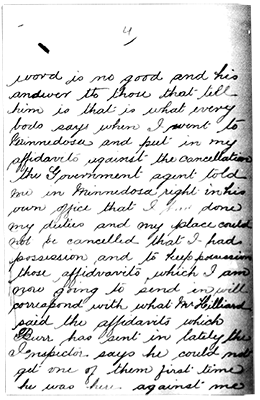 4
word is no good and his
andwer to those that tell
him is that is what every
bods says when I went to
Minnedosa and put in my
affidavits against the cancellation
the Government agent told
me in Minnedosa right in his
own office that I had done
my duties and my place could
not be cancelled that I had
possession and to keep possession
those affidvavits which I am
now going to send in will
correspond with what Mr Hilliard
said the affidavits which
Burr has sent in lately the
Inspector says he could not
get one of them first time
he was here against me